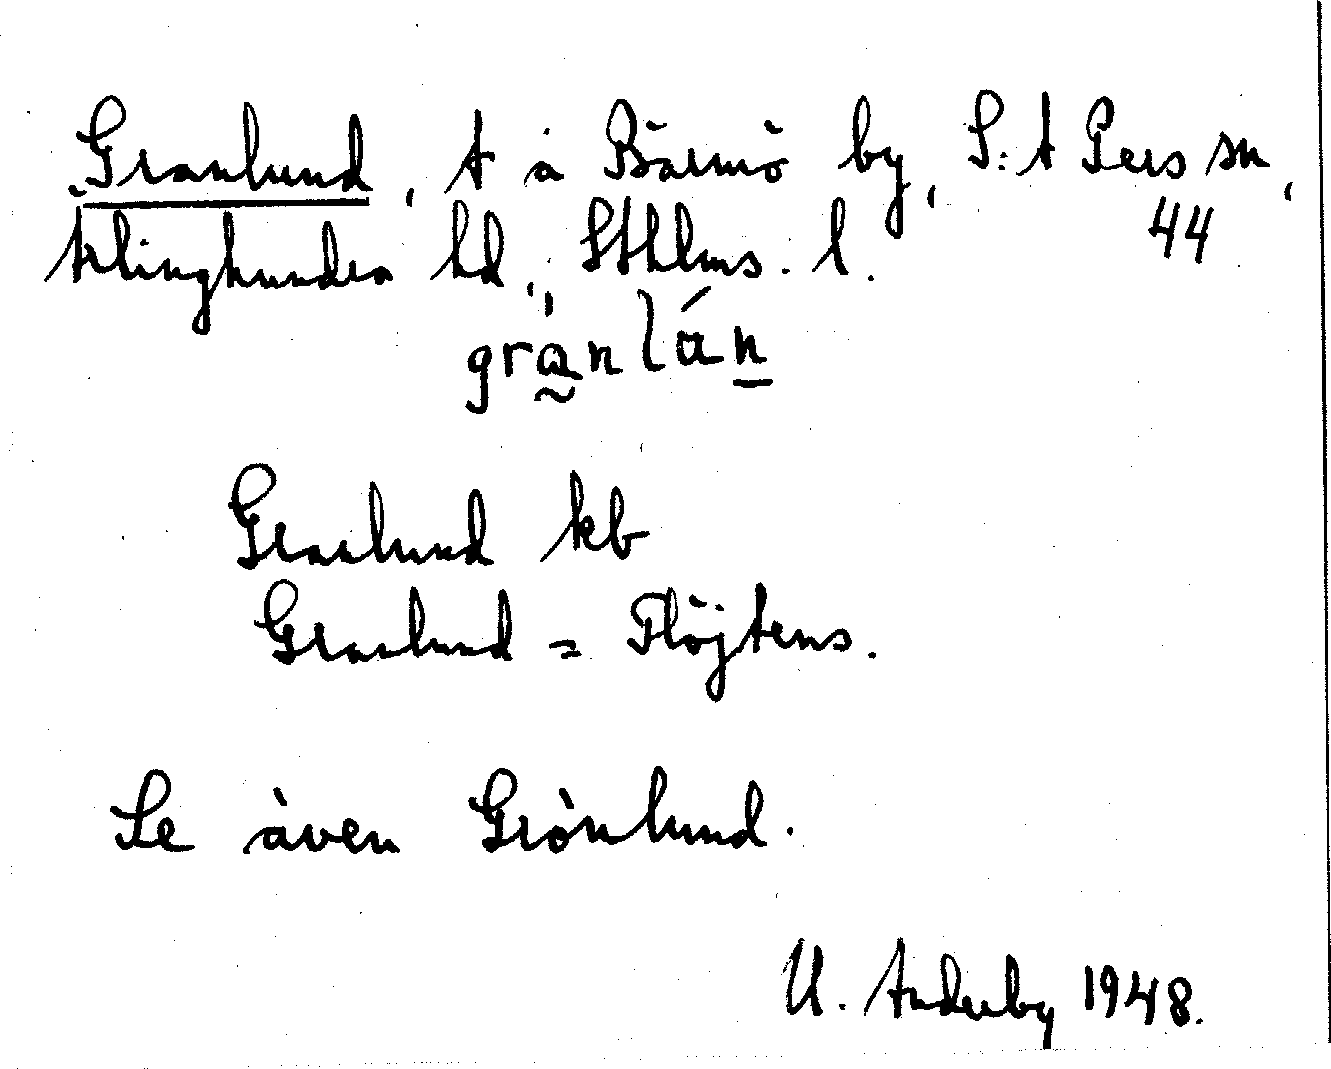 Granlund, t å Bärmö by, S:t Pers sn,
44
Ärlinghundra hd, Sthlms. l.
gránlán
Granlund kb
Granlund = Flöjtens.
Se även Grönlund.
U. Anderby 1948.